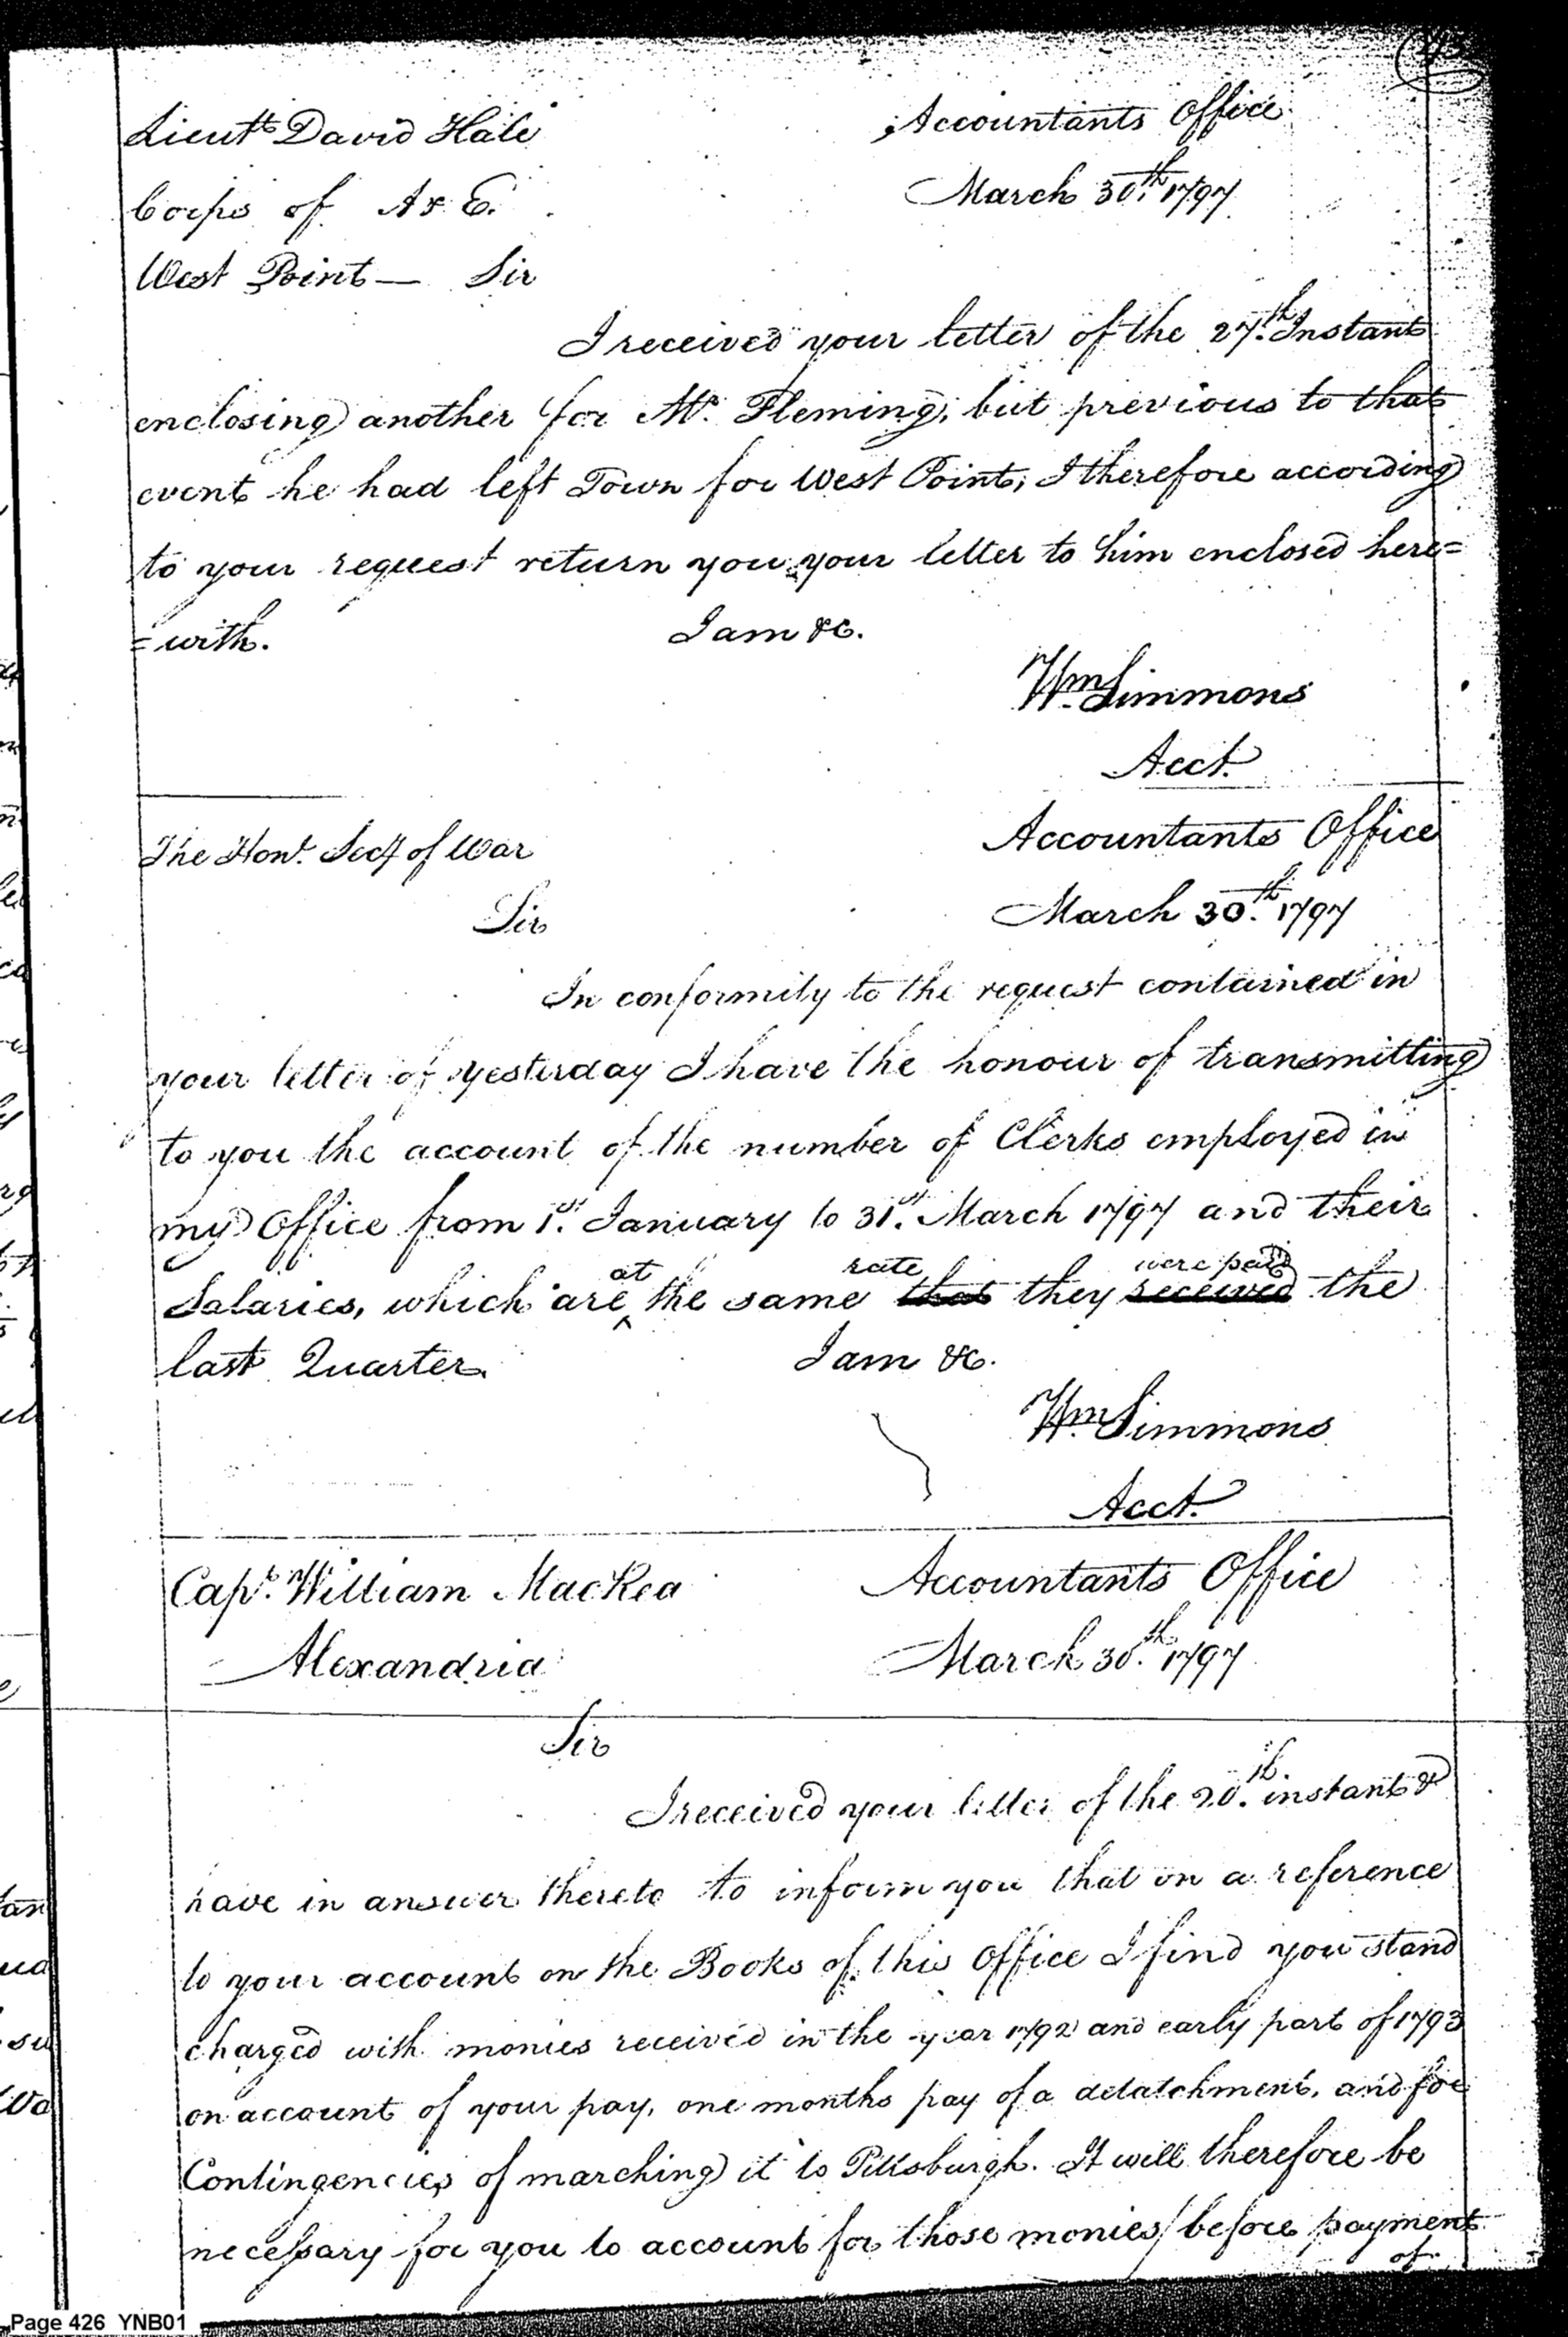 Lieut.t David Hale
Accountants Office
Corps of A & E.
March 30.th 1797
West Point — Sir
I received your letter of the 27.th Instant
enclosing another for Mr. Fleming; but previous to that
event he had left Town for West Point; I therefore according
to your request return you your letter to him enclosed here=
=with. I am &c.
Wm Simmons
Acct.
The Honl. Secy of War
Accountants Office
Sir
March 30.th 1797
In conformity to the request contained in
your letter of yesterday I have the honour of transmitting
to you the account of the number of Clerks employed in
my Office from 1.st January to 31.st March 1797 and their
Salaries, which are at the same that rate they received were paid the
last Quarter. I am &c.
Wm Simmons
Acct.
Capt. William MacRea
Accountants Office
Alexandria
March 30.th 1797
Sir
I received your letter of the 20.th instant &
have in answer thereto to inform you that on a reference
to your account on the Books of this Office I find you stand
charged with monies received in the year 1792 and early part of 1793
on account of your pay, one months pay of a detatchment, and for
Contingencies of marching it to Pittsburgh. It will therefore be
necessary for you to account for those monies before payment
of
Page 426 YNB01